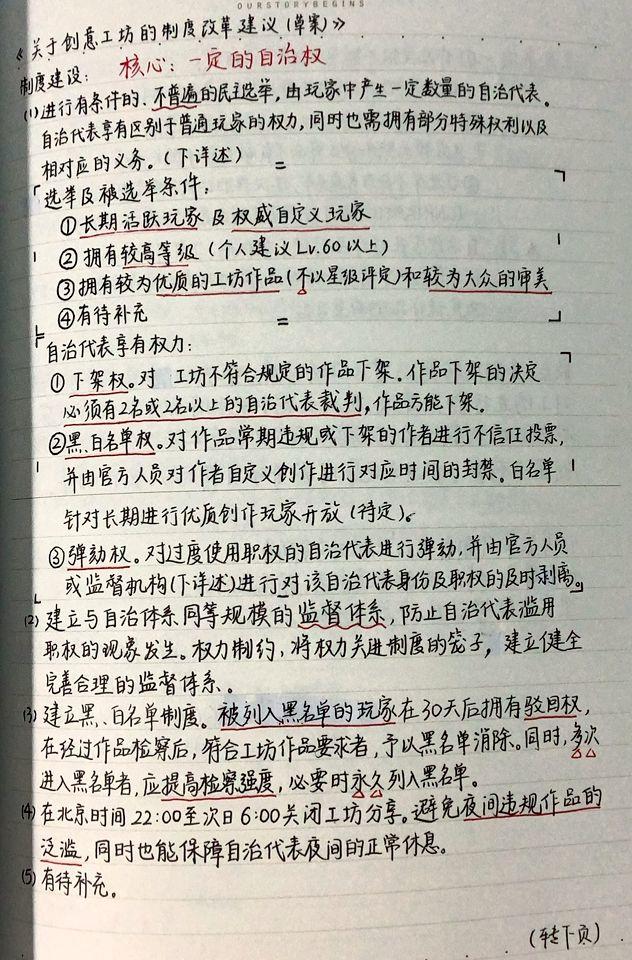 OURSTORYBEGINS
《关于创意工坊的制度改革建议(草案)》
制度建设: 核心:一定的自治权
(1)进行有条件的、不普遍的民主选举,由玩家中产生一定数量的自治代表。
自治代表享有区别于普通玩家的权力,同时也需拥有部分特殊权利以及
相对应的义务。(下详述)
选举及被选举条件:
①长期活跃玩家及权威自定义玩家
②拥有较高等级(个人建议Lv.60以上)
③拥有较为优质的工坊作品(不以星级评定)和较为大众的审美
④有待补充
自治代表享有权力:
①下架权。对工坊不符合规定的作品下架。作品下架的决定
必须有2名或2名以上的自治代表裁判,作品方能下架。
②黑、白名单权。对作品常期违规或下架的作者进行不信任投票,
并由官方人员对作者自定义创作进行对应时间的封禁。白名单
针对长期进行优质创作玩家开放(待定)。
③弹劾权。对过度使用职权的自治代表进行弹劾,并由官方人员
或监督机构(下详述)进行对该自治代表身份及职权的及时剥离。
(2)建立与自治体系同等规模的监督体系,防止自治代表滥用
职权的现象发生。权力制约,将权力关进制度的笼子,建立健全
完善合理的监督体系。
(3)建立黑、白名单制度。被列入黑名单的玩家在30天后拥有驳回权,
在经过作品检察后,符合工坊作品要求者,予以黑名单消除。同时,多次
进入黑名单者,应提高检察强度,必要时永久列入黑名单。
(4)在北京时间22:00至次日6:00关闭工坊分享。避免夜间违规作品的
泛滥,同时也能保障自治代表夜间的正常休息。
(5)有待补充。
(转下页)